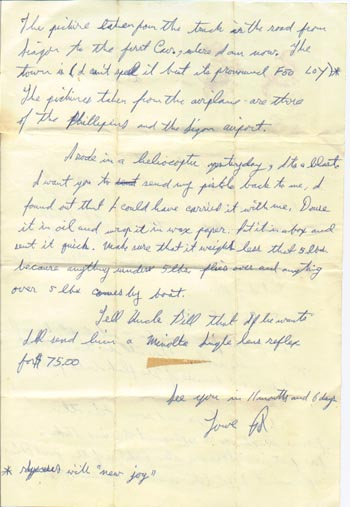 The pictures taken from the truck is the road from
Sigon to the first Cav., where I am now. The
town is (I can't spell it but its pronouned FOO LOY)*
The pictures taken from the airplane are those
of the Phillepins and the Sigon airport.
I rode in a heliocoptic yesterday, Its a blast
I want you to send my pistole back to me, I
found out that I could have carried it with me. Douse
it in oil and wrap it in wax paper. Put it in a box and
sent it quick. Make sure that it weighs less that 5 lbs.
because anything under 5 lbs. flies over and anything
over 5 lbs comes by boat.
Tell Uncle Bill that if he wants
I'll send him a Minolta single lens reflex
for $ 75.00
See you in 11 months and 6 days
Love
* rhymes with "new joy"